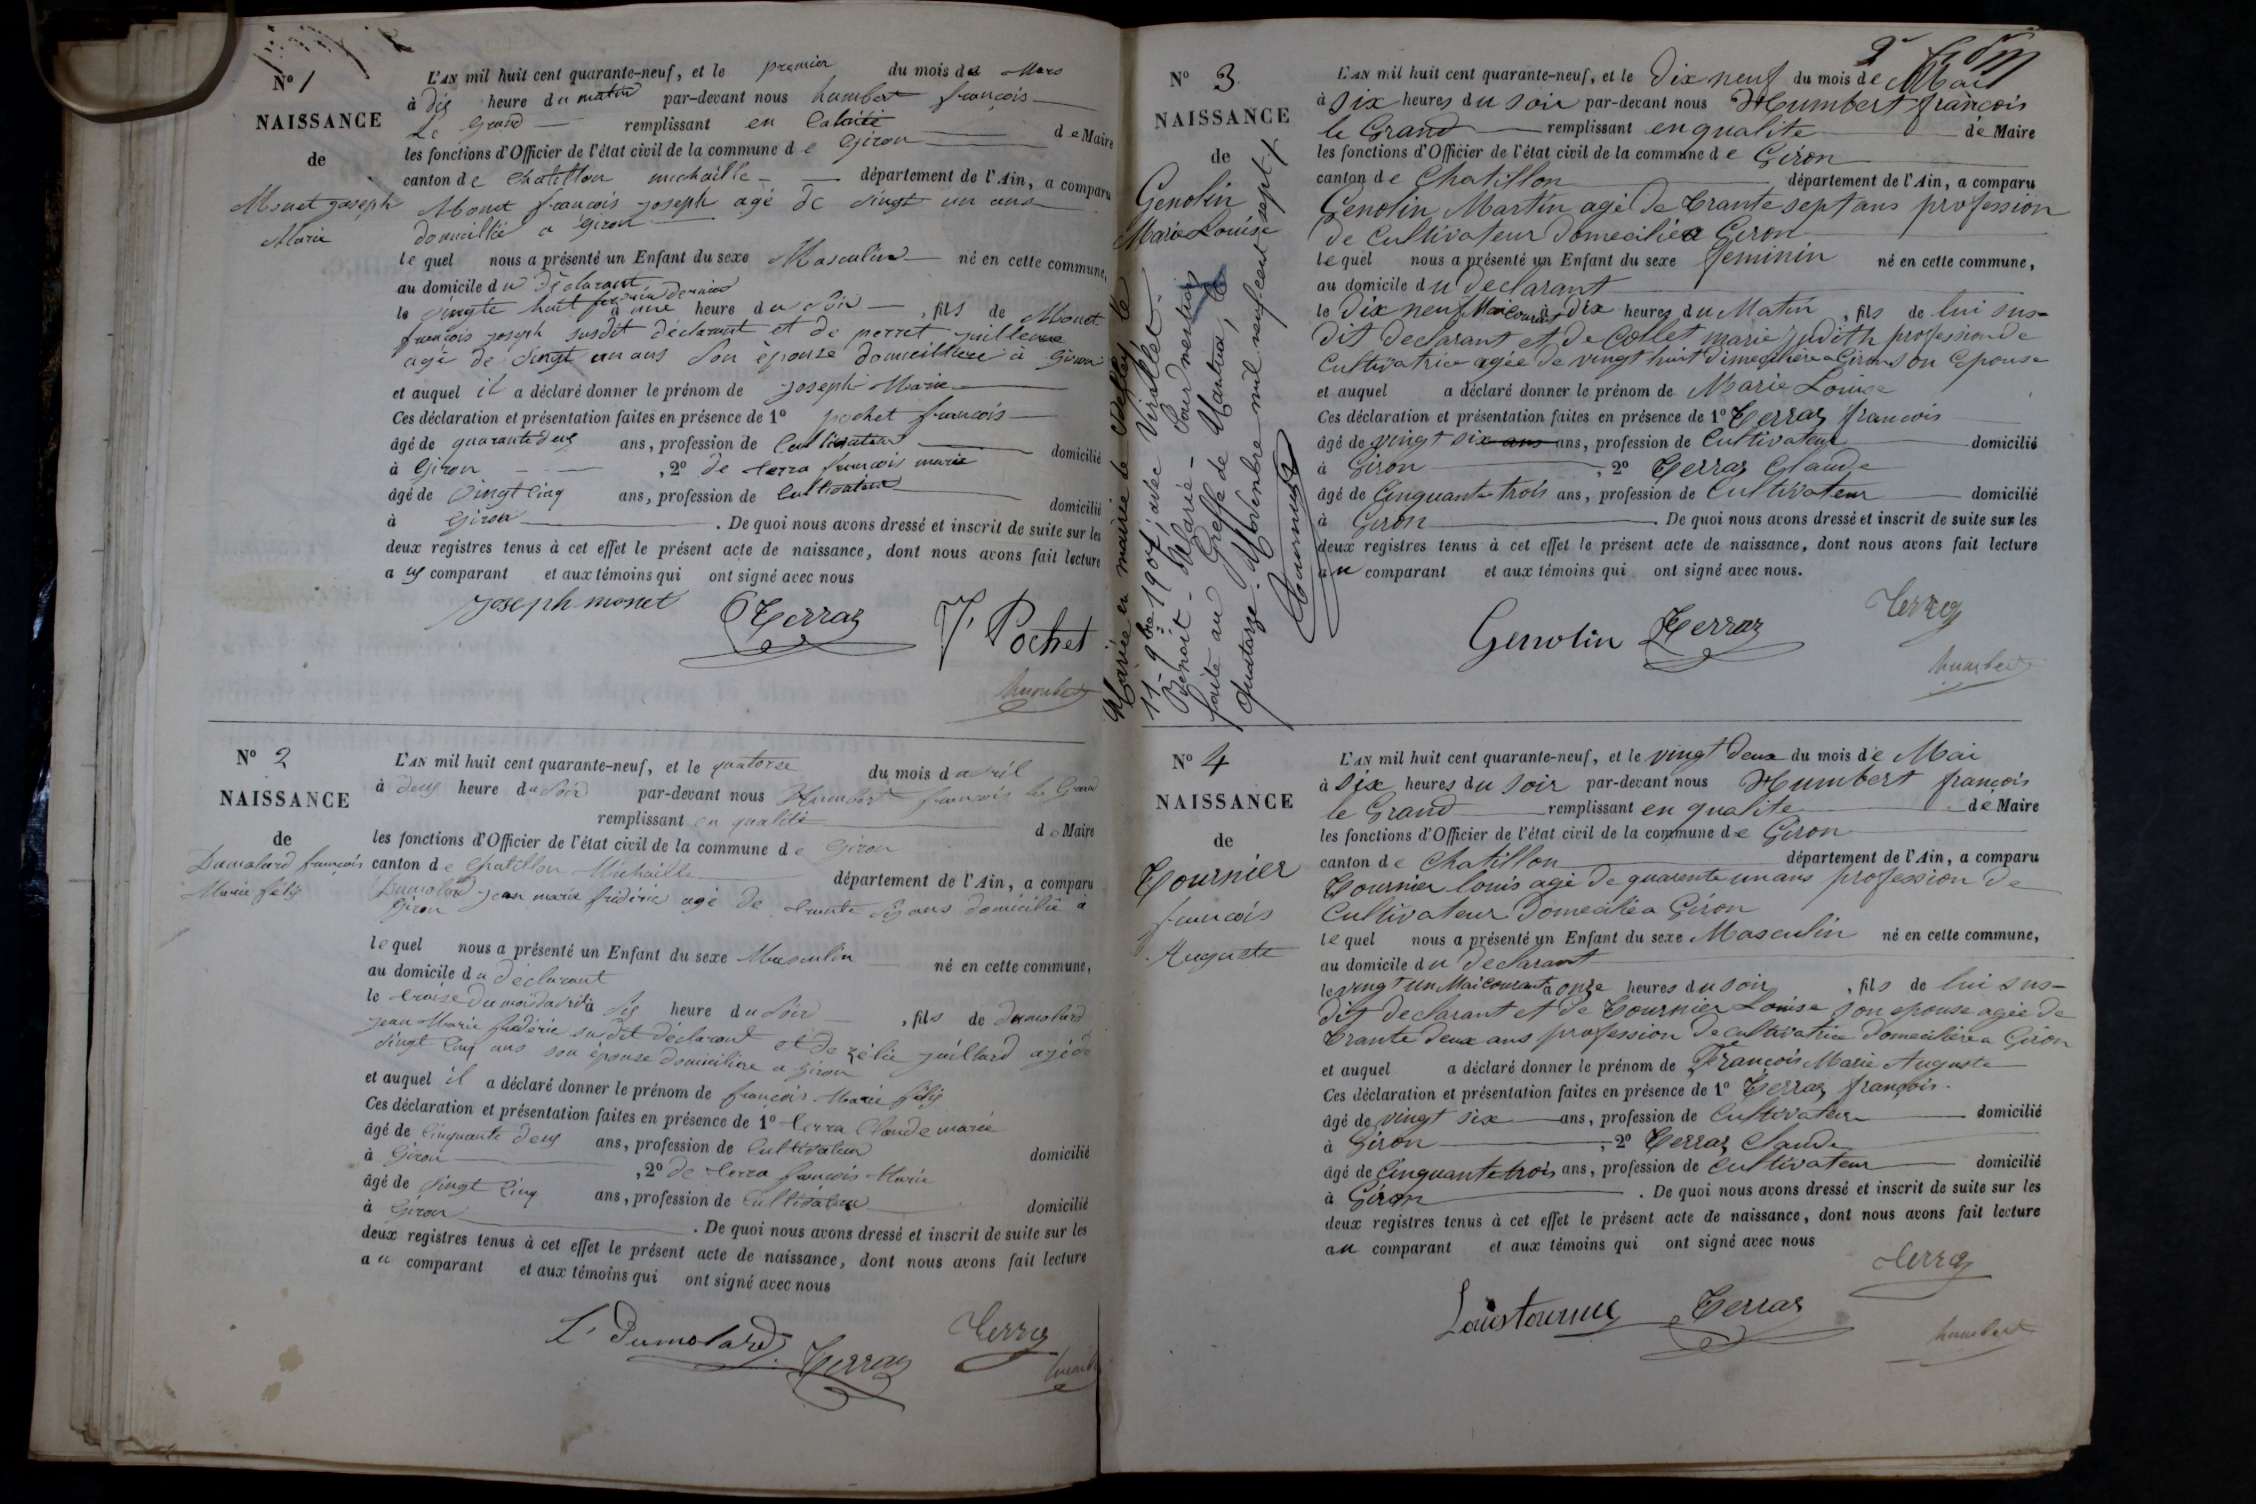 N° 1
NAISSANCE
de
Monet joseph
Marie
L'AN mil huit cent quarante-neuf, et le premier du mois de Mars
à dix heure du matin par-devant nous humbert françois
Le Grand remplissant en de Maire
les fonctions d'Officier de l'état civil de la commune de Giron
canton de Chatillon michaille département de l'Ain, a comparu
Monet françois joseph agé de vingt un ans
domicilié a Giron
lequel nous a présenté un Enfant du sexe Masculin né en cette commune,
au domicile du déclarant
le vingte huit dernier à une heure du soir, fils de Monet
françois joseph susdit déclarant et de perret
agé de vingt un ans son épouse domicilliere à Giron
et auquel il a déclaré donner le prénom de joseph Marie
Ces déclaration et présentation faites en présence de 1° pochet francois
âgé de quarante deux ans, profession de Cultivateur domicilié
à Giron, 2° de terra francois marie
âgé de vingt cinq ans, profession de Cultivateur domicilié
à Giron. De quoi nous avons dressé et inscrit de suite sur les
deux registres tenus à cet effet le présent acte de naissance, dont nous avons fait lecture
a comparant et aux témoins qui ont signé avec nous
joseph monet Terraz Pochet
humbert
N° 2
NAISSANCE
de
Dumolard françois
Marie felix
L'AN mil huit cent quarante-neuf, et le quatorze du mois davril
à deux heure du soir par-devant nous Humbert françois Le Grand
remplissant en qualité de Maire
les fonctions d'Officier de l'état civil de la commune de Giron
canton de Chatillon Michaille département de l'Ain, a comparu
Dumolard jean marie fréderic agé de trente six ans domicilié a
Giron
lequel nous a présenté un Enfant du sexe Masculin né en cette commune,
au domicile du declarant
le treise du mois davril à six heure du soir, fils de dumolard
jean Marie fréderic susdit déclarant et de zélie juillard agé de
vingt cinq ans son épouse domiciliere a Giron
et auquel il a déclaré donner le prénom de françois Marie félix
Ces déclaration et présentation faites en présence de 1° terra Claude marie
âgé de Cinquante deux ans, profession de Cultivateur domicilié
à Giron, 2° de terra francois Marie
âgé de vingt cinq ans, profession de Cultivateur domicilié
à Giron. De quoi nous avons dressé et inscrit de suite sur les
deux registres tenus à cet effet le présent acte de naissance, dont nous avons fait lecture
au comparant et aux témoins qui ont signé avec nous
Dumolard Terraz Terraz
humbert
N° 3
NAISSANCE
de
Genolin
Marie Louise
Mariée en mairie de le
11 - 9bre 1907 avec Virallet
Benoit - Marie - Pour mention
faite au Greffe de Nantua, le
quatorze Novembre mil neuf cent sept
L'AN mil huit cent quarante-neuf, et le Dix neuf du mois de Mai
à six heures du soir par-devant nous Humbert françois
le Grand remplissant en qualite de Maire
les fonctions d'Officier de l'état civil de la commune de Giron
canton de Chatillon département de l'Ain, a comparu
Genolin Martin agé de trante sept ans profession
de Cultivateur domecilié a Giron
lequel nous a présenté un Enfant du sexe feminin né en cette commune,
au domicile du declarant
le dix neuf Mai courant à Dix heures du Matin, fils de lui sus-
dit declarant et de Collet marie judith profession de
Cultivatrice agée de vingt huit domecilière a Giron son epouse
et auquel a déclaré donner le prénom de Marie Louise
Ces déclaration et présentation faites en présence de 1° Terraz françois
âgé de vingt six ans ans, profession de Cultivateur domicilié
à Giron, 2° Terraz Claude
âgé de Cinquante trois ans, profession de Cultivateur domicilié
à Giron. De quoi nous avons dressé et inscrit de suite sur les
deux registres tenus à cet effet le présent acte de naissance, dont nous avons fait lecture
au comparant et aux témoins qui ont signé avec nous.
Genolin Terraz Terraz
humbert
N° 4
NAISSANCE
de
Tournier
francois
Auguste
L'AN mil huit cent quarante-neuf, et le vingt deux du mois de Mai
à six heures du soir par-devant nous Humbert françois
le Grand remplissant en qualite de Maire
les fonctions d'Officier de l'état civil de la commune de Giron
canton de Chatillon département de l'Ain, a comparu
Tournier louis agé de quarente un ans profession de
Cultivateur Domecilié a Giron
lequel nous a présenté un Enfant du sexe Masculin né en cette commune,
au domicile du declarant
le vingt un Mai courant à onze heures du soir, fils de lui sus-
dit declarant et de Tournier Louise son epouse agée de
trante deux ans profession de cultivatrice domecilière a Giron
et auquel a déclaré donner le prénom de François Marie Auguste
Ces déclaration et présentation faites en présence de 1° Terraz françois.
âgé de vingt six ans, profession de Cultivateur domicilié
à Giron, 2° Terraz Claude
âgé de Cinquante trois ans, profession de Cultivateur domicilié
à Giron. De quoi nous avons dressé et inscrit de suite sur les
deux registres tenus à cet effet le présent acte de naissance, dont nous avons fait lecture
au comparant et aux témoins qui ont signé avec nous
Terraz
Louis tournier Terraz
humbert